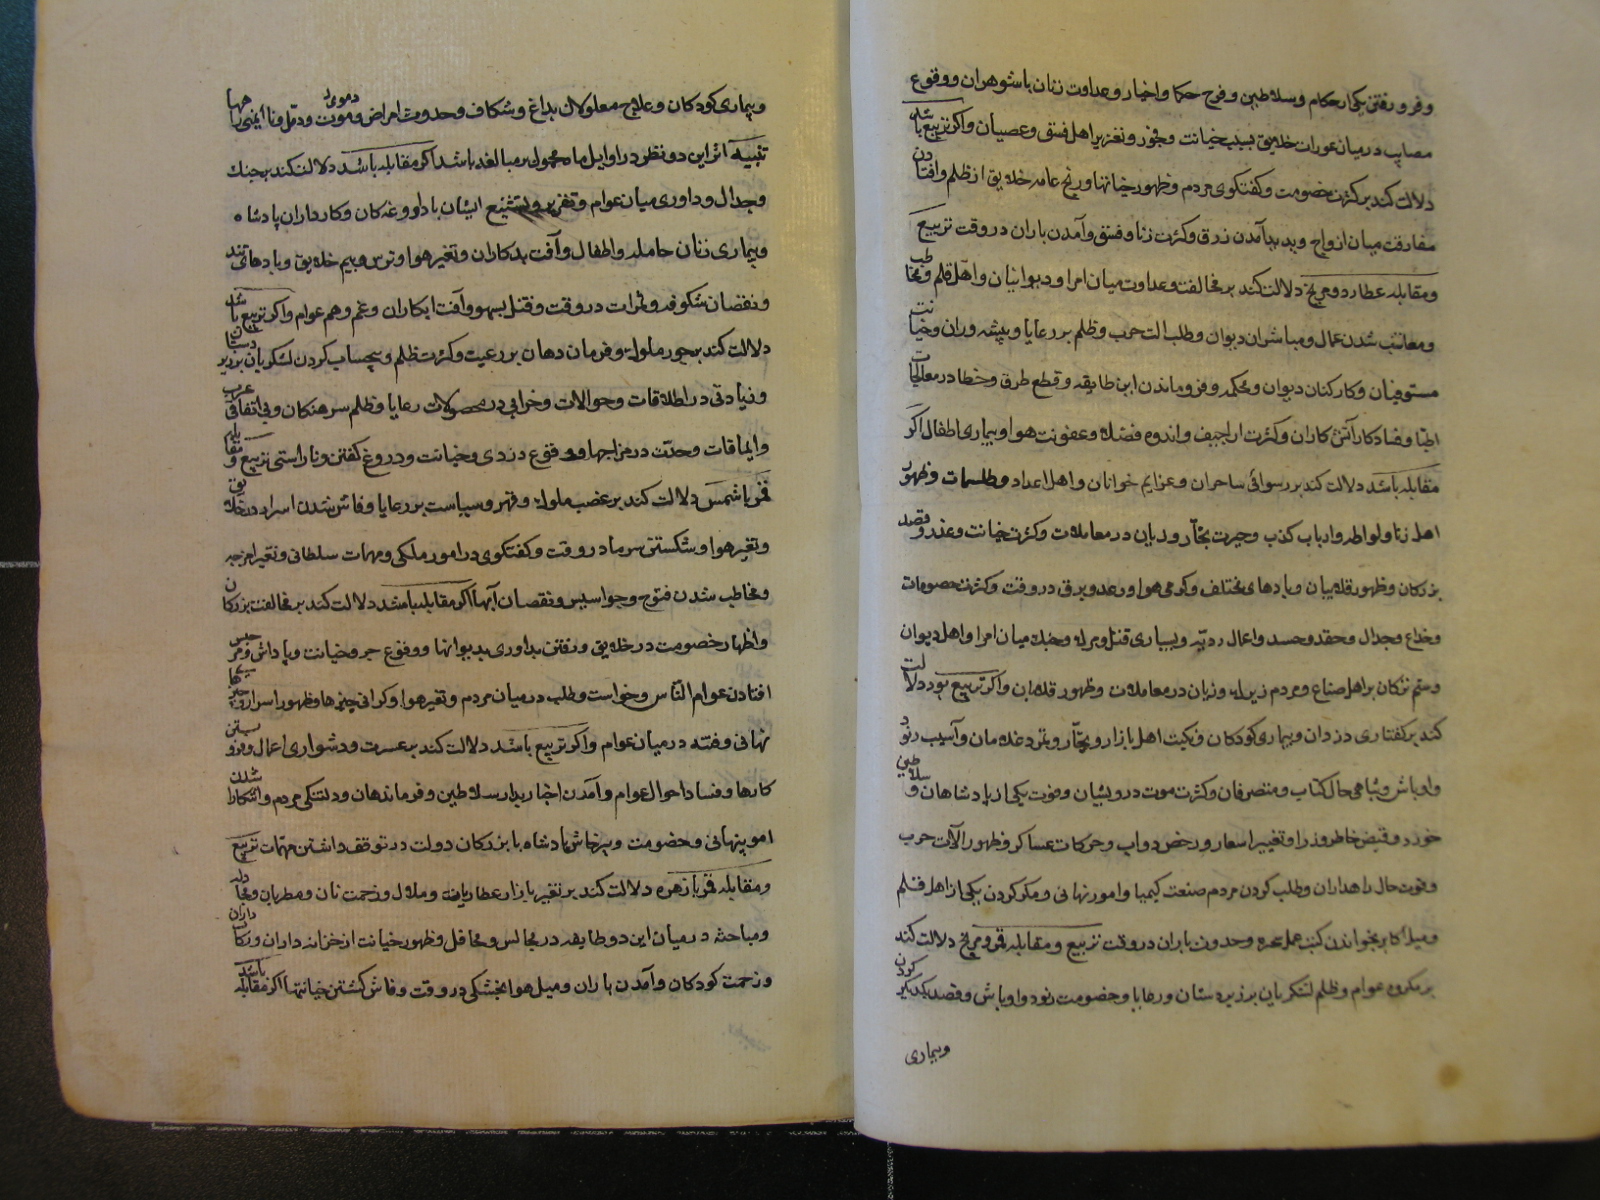 و فرو رفتن یکی از حکام و سلاطین و فرح حکما و اخیار و عداوت زنان با شوهران و وقوع
مصایب در میان عورات خلایق بسبب خیانت و فجور و تعزیر اهل فسق و عصیان و اگر تربیع باشد
دلالت کند بر کثرت خصومت و کفتکوی مردم و ظهور خیانتها و رنج عامه خلایق از ظلم و افتادن
مفارقت میان ازواج و پدید آمدن زرق و کثرت زنا و فسق و آمدن باران در وقت تربیع
و مقابله عطارد و مریخ دلالت کند بر مخالفت و عداوت میان امرا و دیوانیان و اهل قلم و مخاطب
و معاتب شدن عمال و مباشران دیوان و طلب الت حرب و ظلم بر رعایا و پیشه وران و خیانت
مستوفیان و کارکنان دیوان و محکمه و فرو ماندن این طایفه و قطع طرق و خطا در معالجات
اطبا و فساد کار آتش کاران و کثرت اراجیف و اندوه فضلا و عفونت هوا و بیماری اطفال اگر
مقابله باشد دلالت کند بر رسوائی ساحران و عزایم خوانان و اهل اعداد و طلسمات و ظهور
اهل زنا و لواطه و ارباب کذب و حیرت تجار و زیان در معاملات و کثرت خیانت و غدر و قصد
بزرکان و ظهور قلابیان و بادهای مختلف و کرمی هوا و رعد و برق در وقت و کثرت خصومات
و خداع و جدال و حقد و حسد و اعمال ردیه و بسیاری قتل و جنک میان امرا و اهل دیوان
و ستم ترکان بر اهل صناع و مردم زیرک و زیان در معاملات و ظهور قلابان و اگر تربیع بود دلالت
کند بر کفتاری دزدان و بیماری کودکان و نکبت اهل بازار و تجار و تمرد غلامان و آسیب رنود
و اوباش و تباهی حال کتاب و متصرفان و کثرت موت درویشان و فوت یکی از پادشاهان و سلاطین
خورد و قبض خاطر وزرا و تغییر اسعار و رخص دواب و حرکات عساکر و ظهور آلات حرب
و قوت حال راهداران و طلب کردن مردم صنعت کیمیا و امور نهانی و مکر کردن یکی از اهل قلم
و میل اکابر بخواندن کتب عمل سحره و حدوث باران در وقت تربیع و مقابله قمر و مریخ دلالت کند
بر مکروه عوام و ظلم لشکریان بر زیردستان و رعایا و خصومت رنود و اوباش و قصد یکدیکر کردن
و بیماری
و بیماری کودکان و علاج معلولان بداغ و شکاف و حدوث امراض دموی و موت و دمل و ناایمنی راهها
تنبیه اثر این دو نظر در اوایل ماه محمول بر مبالغه باشد اگر مقابله باشد دلالت کند بر جنک
و جدال و داوری میان عوام و تعزیر و تشنیع ایشان با داروغه کان و کارداران پادشاه
و بیماری زنان حامله و اطفال و آفت بدکاران و تغیر هوا و ترس و بیم خلایق و بادهای تند
و نقصان شکوفه و ثمرات در وقت و قتل بسهو و آفت ابکاران و غم و هم عوام و اگر تربیع باشد
دلالت کند بر جور ملوک و فرمان دهان بر رعیت و کثرت ظلم و بیحساب کردن لشکریان بر زیردستان
و زیادتی در اطلاقات و حوالات و خرابی در محصولات رعایا و ظلم سرهنکان و بی اتفاقی عرب
و ایماقات و حدت در مزاجها و وقوع دزدی و خیانت و دروغ کفتن و ناراستی تربیع و مقابله
قمر با شمس دلالت کند بر غضب ملوک و قهر و سیاست بر رعایا و فاش شدن اسرار خلایق
و تغیر هوا و شکستن سرما در وقت و کفتکوی در امور ملکی و مهمات سلطانی و تغیر امزجه
و مخاطب شدن فتوح و جواسیس و نقصان آبها اگر مقابله باشد دلالت کند بر مخالفت بزرکان
و اظهار خصومت در خلایق و رفتن بداوری بدیوانها و وقوع جرم و خیانت و پاداش و حبس
افتادن عوام الناس و خواست و طلب در میان مردم و تغیر هوا و کرانی چیزها و ظهور اسرار
نهانی و فتنه در میان عوام و اگر تربیع باشد دلالت کند بر عسرت و دشواری اعمال و فرو بستن
کارها و فساد احوال عوام و آمدن اخبار بد از سلاطین و فرماندهان و دلتنکی مردم و آشکارا شدن
امور پنهانی و خصومت و پرخاش پادشاه با بزرکان دولت در توقف داشتن مهمات تربیع
و مقابله قمر با زهره دلالت کند بر تغیر بازار عطاریان و ملال و زحمت زنان و مطربان و مجادله
و مباحثه در میان این دو طایفه در مجالس و محافل و ظهور خیانت از خزانه داران و رکابداران
و زحمت کودکان و آمدن باران و میل هوا بخشکی در وقت و فاش کشتن خیانتها اگر مقابله باشد